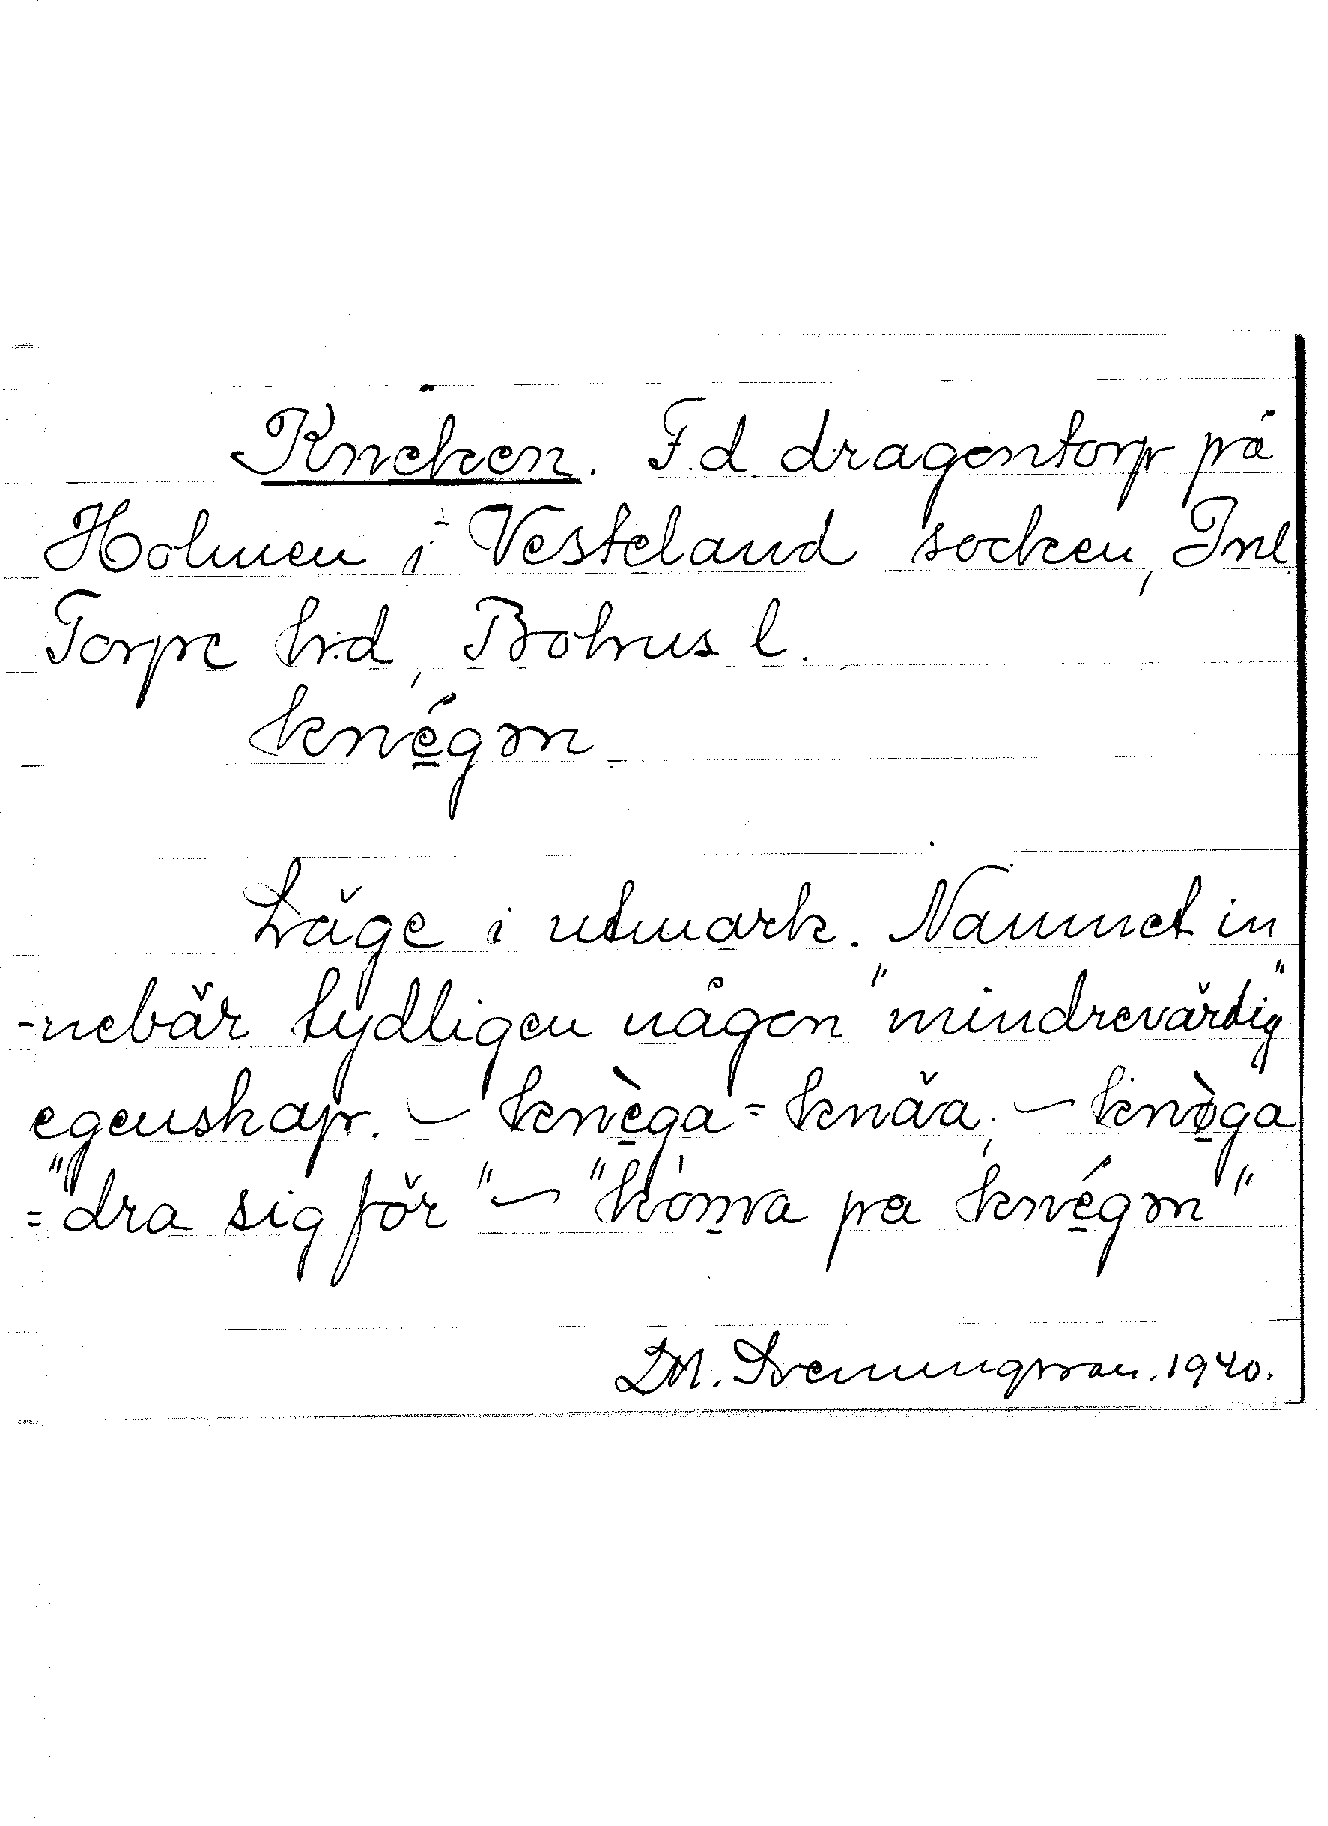 Kneken. F.d. dragontorp på
Holmen i Vesteland socken, Inl.
Torpe hrd, Bohus l.
knégən
Läge i utmark. Namnet in
-nebär tydligen någon "mindrevärdig"
egenskap. – knèga = knäa; – knèga
= "dra sig för" – "kóma pa knégən"
1940.